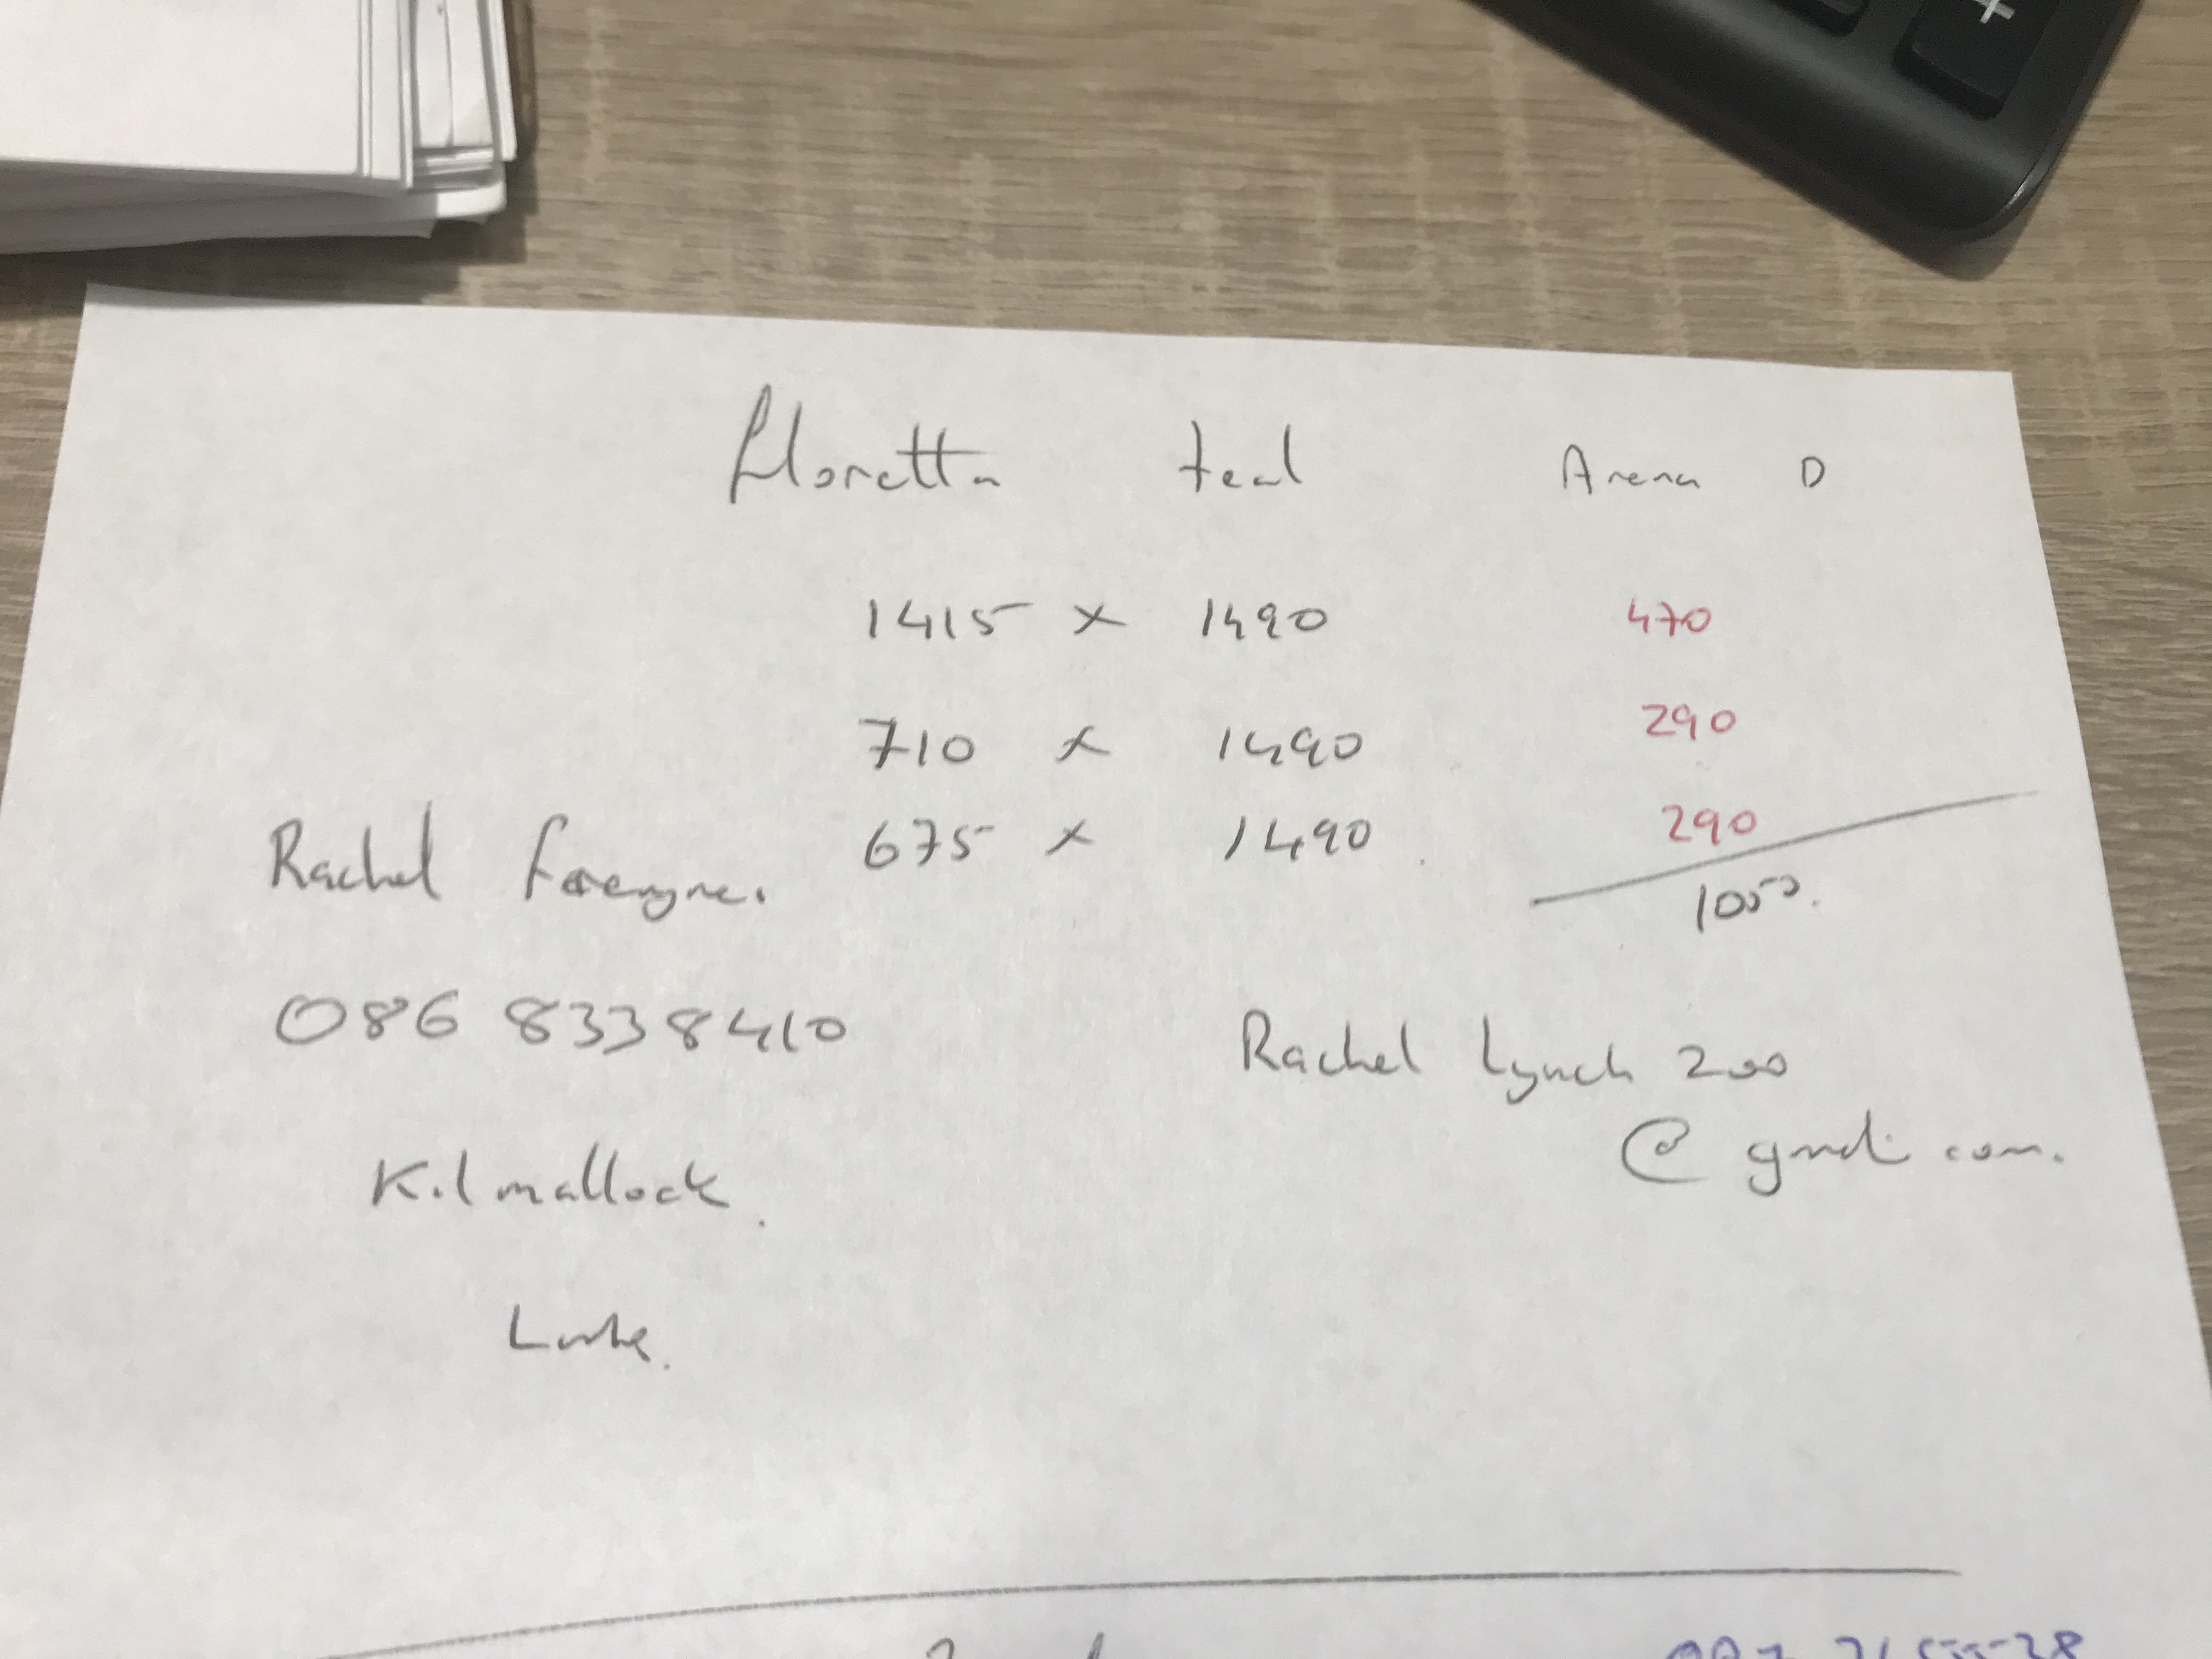 floretta teal Arena D
1415 x 1490 470
710 x 1490 290
675 x 1490 290
1050.
Rachel
086 8338410
Rachel Lynch 200
@ gmail com.
Kilmallock.